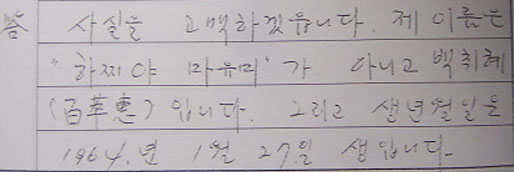 答 사실을 고백하겠읍니다. 제 이름은
"하찌야 마유미"가 아니고 백취혜
(百萃惠)입니다. 그리고 생년월일은
1964.년 1월 27.일 생입니다.